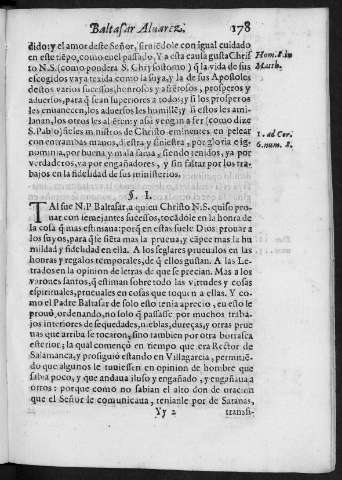 Baltasar Aluarez. 178
dido: y el amor deste Señor, siruiẽdole con igual cuidado
en este tiẽpo, como en el passado. Y a esta causa gusta Chris
to N.S. (como pondera S. Chrysostomo) q̃ la vida de sus
escogidos vaya texida como la suya, y la de sus Apostoles
destos varios sucessos, honrosos y afrẽtosos, prosperos y
aduersos, para q̃ sean superiores a todos; y si los prosperos
les enuanecen, los aduersos les humillẽ; y si estos les ami-
lanan, los otros les alientẽ; y assi vengan a ser (como dize
S. Pablo) fieles ministros de Christo eminentes en pelear
con entrambas manos, diestra y siniestra, por gloria e ig-
nominia, por buena y mala fama, siendo tenidos, ya por
verdaderos, ya por engañadores, sin ser faltos por los tra-
bajos en la fidelidad de sus ministerios.
Hom. 8. in
Matth.
1. ad Cor.
6. num. 8.
§. I.
TAl fue N.P. Baltasar, a quien Christo N.S. quiso pro-
uar con semejantes sucessos, tocãdole en la honra de
la cosa q̃ mas estimaua: porq̃ en estas suele Dios prouar a
los suyos, para q̃ se siẽta mas la prueua, y cãpee mas la hu
mildad y fidelidad en ella. A los seglares prueualos en las
honras y regalos temporales, de q̃ ellos gustan. A las Le-
trados en la opinion de letras de que se precian. Mas a los
varones santos, q̃ estiman sobre todo las virtudes y cosas
espirituales, prueualos en cosas que toquen a ellas. Y co-
mo el Padre Baltasar de solo esto tenia aprecio, en esto le
prouò, ordenando, no solo q̃ passasse por muchos traba-
jos interiores de sequedades, nieblas, durezas, y otras prue
uas que arriba se tocaron, sino tambien por otra borrasca
exterior; la qual començò en tiempo que era Rector de
Salamanca, y prosiguiò estando en Villagarcia, permitiẽ-
do que algunos le tuuiessen en opinion de hombre que
sabia poco, y que andaua iluso y engañado, y engañaua a
otros: porque como no sabian el alto don de oracion
que el Señor le comunicaua, tenianle por de Satanas,
Yy 2 transfi-